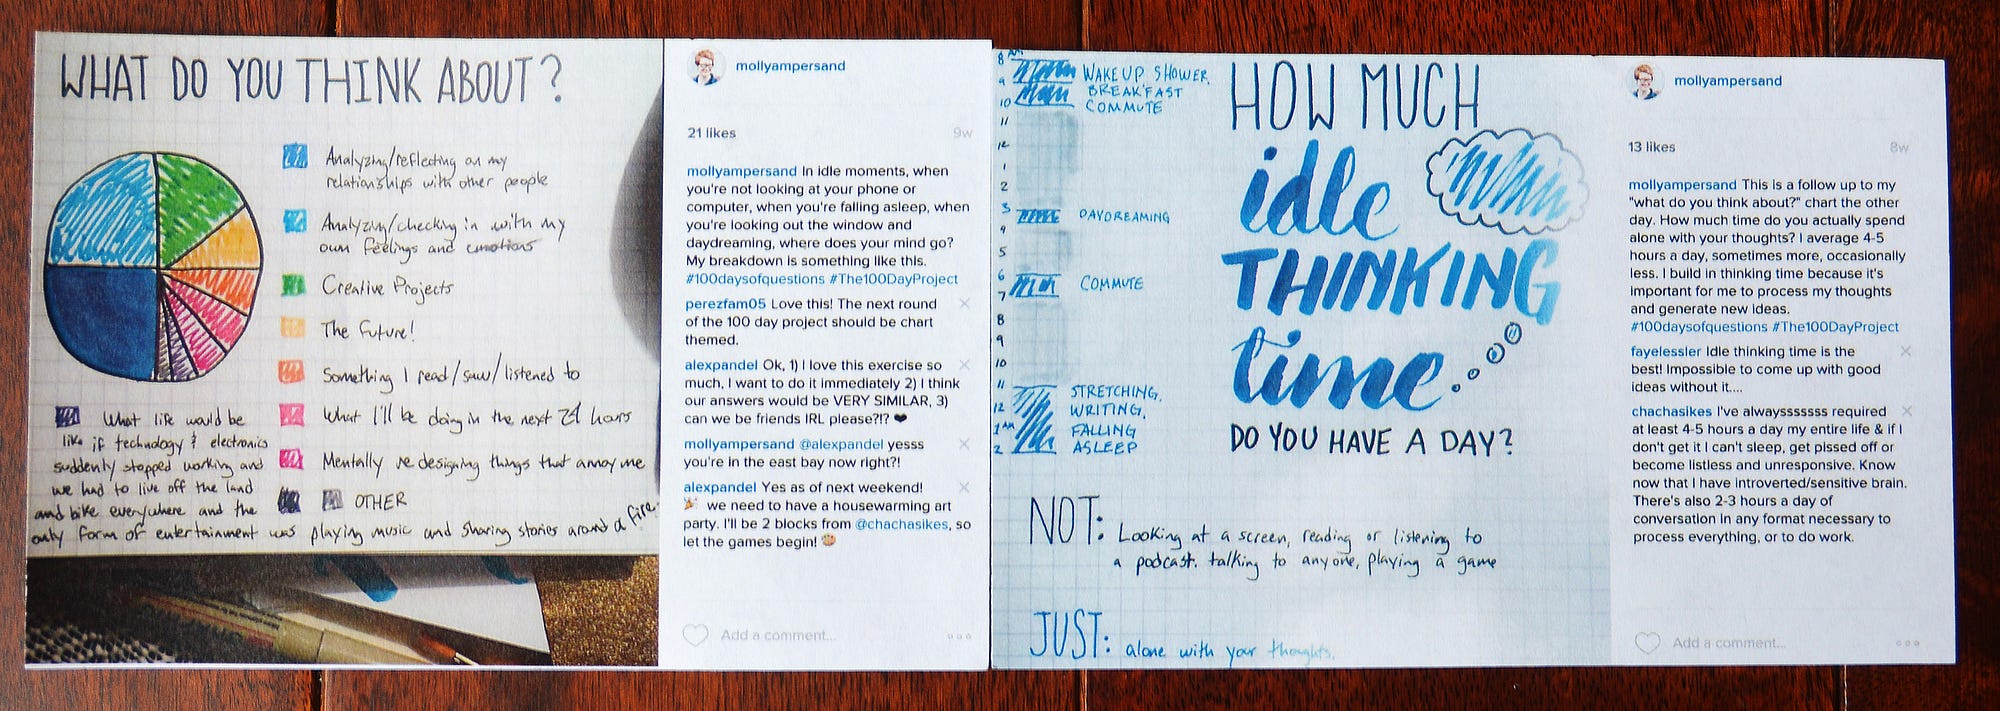 WHAT DO YOU THINK ABOUT?
Analyzing/reflecting on my
relationships with other people
Analyzing/checking in with my
own feelings and emotions
Creative Projects
The Future!
Something I read/saw/listened to
What I'll be doing in the next 24 hours
Mentally redesigning things that annoy me
OTHER
What life would be
like if technology & electronics
suddenly stopped working and
we had to live off the land
and bike everywhere and the
only form of entertainment was playing music and sharing stories around a fire.
mollyampersand
21 likes
9w
mollyampersand In idle moments, when
you're not looking at your phone or
computer, when you're falling asleep, when
you're looking out the window and
daydreaming, where does your mind go?
My breakdown is something like this.
#100daysofquestions #The100DayProject
perezfam05 Love this! The next round
of the 100 day project should be chart
themed.
alexpandel Ok, 1) I love this exercise so
much, I want to do it immediately 2) I think
our answers would be VERY SIMILAR, 3)
can we be friends IRL please?!? ❤
mollyampersand @alexpandel yesss
you're in the east bay now right?!
alexpandel Yes as of next weekend!
🎉 we need to have a housewarming art
party. I'll be 2 blocks from @chachasikes, so
let the games begin! 🎨
Add a comment...
8 AM
9
10
11
12
1
2
3
4
5
6
7
8
9
10
11
12
1 AM
2
WAKE UP, SHOWER,
BREAKFAST
COMMUTE
DAYDREAMING
COMMUTE
STRETCHING,
WRITING,
FALLING
ASLEEP
HOW MUCH
idle
THINKING
time
DO YOU HAVE A DAY?
NOT: Looking at a screen, reading or listening to
a podcast. talking to anyone, playing a game
JUST: alone with your thoughts.
mollyampersand
13 likes
8w
mollyampersand This is a follow up to my
"what do you think about?" chart the other
day. How much time do you actually spend
alone with your thoughts? I average 4-5
hours a day, sometimes more, occasionally
less. I build in thinking time because it's
important for me to process my thoughts
and generate new ideas.
#100daysofquestions #The100DayProject
fayelessler Idle thinking time is the
best! Impossible to come up with good
ideas without it....
chachasikes I've alwaysssssss required
at least 4-5 hours a day my entire life & if I
don't get it I can't sleep, get pissed off or
become listless and unresponsive. Know
now that I have introverted/sensitive brain.
There's also 2-3 hours a day of
conversation in any format necessary to
process everything, or to do work.
Add a comment...